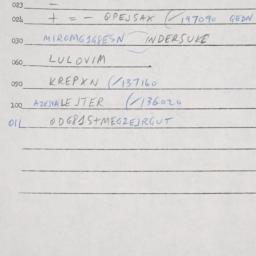 023 -
024 + = - OPEJSAX (/147090 GEDN
030 MIROMG1GPESN INDERSUKE
060 LULOVIM
090 KREPXN (/137160
100 LEJTER (/136020
011 ODG81S+MEGZEJRGUT